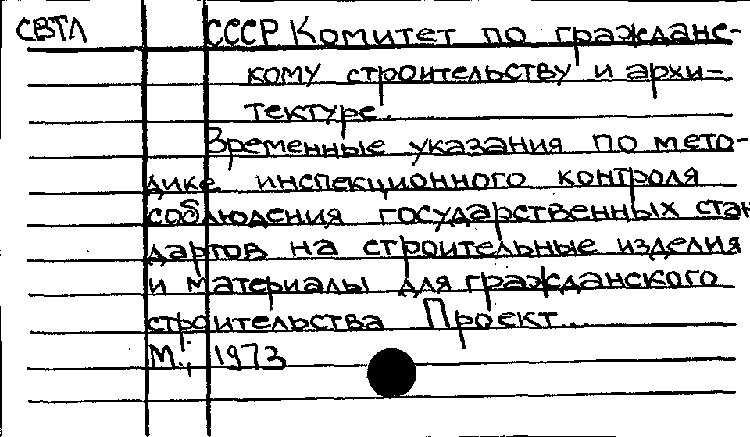 СВТЛ СССР Комитет по граждан-
кому строительству и архи-
тектуре.
Временные указания по мето-
дике инспекционного контроля
соблюдения государственных стан
дартов на строительные изделия
и материалы для гражданского
строительства Проект...
М., 1973